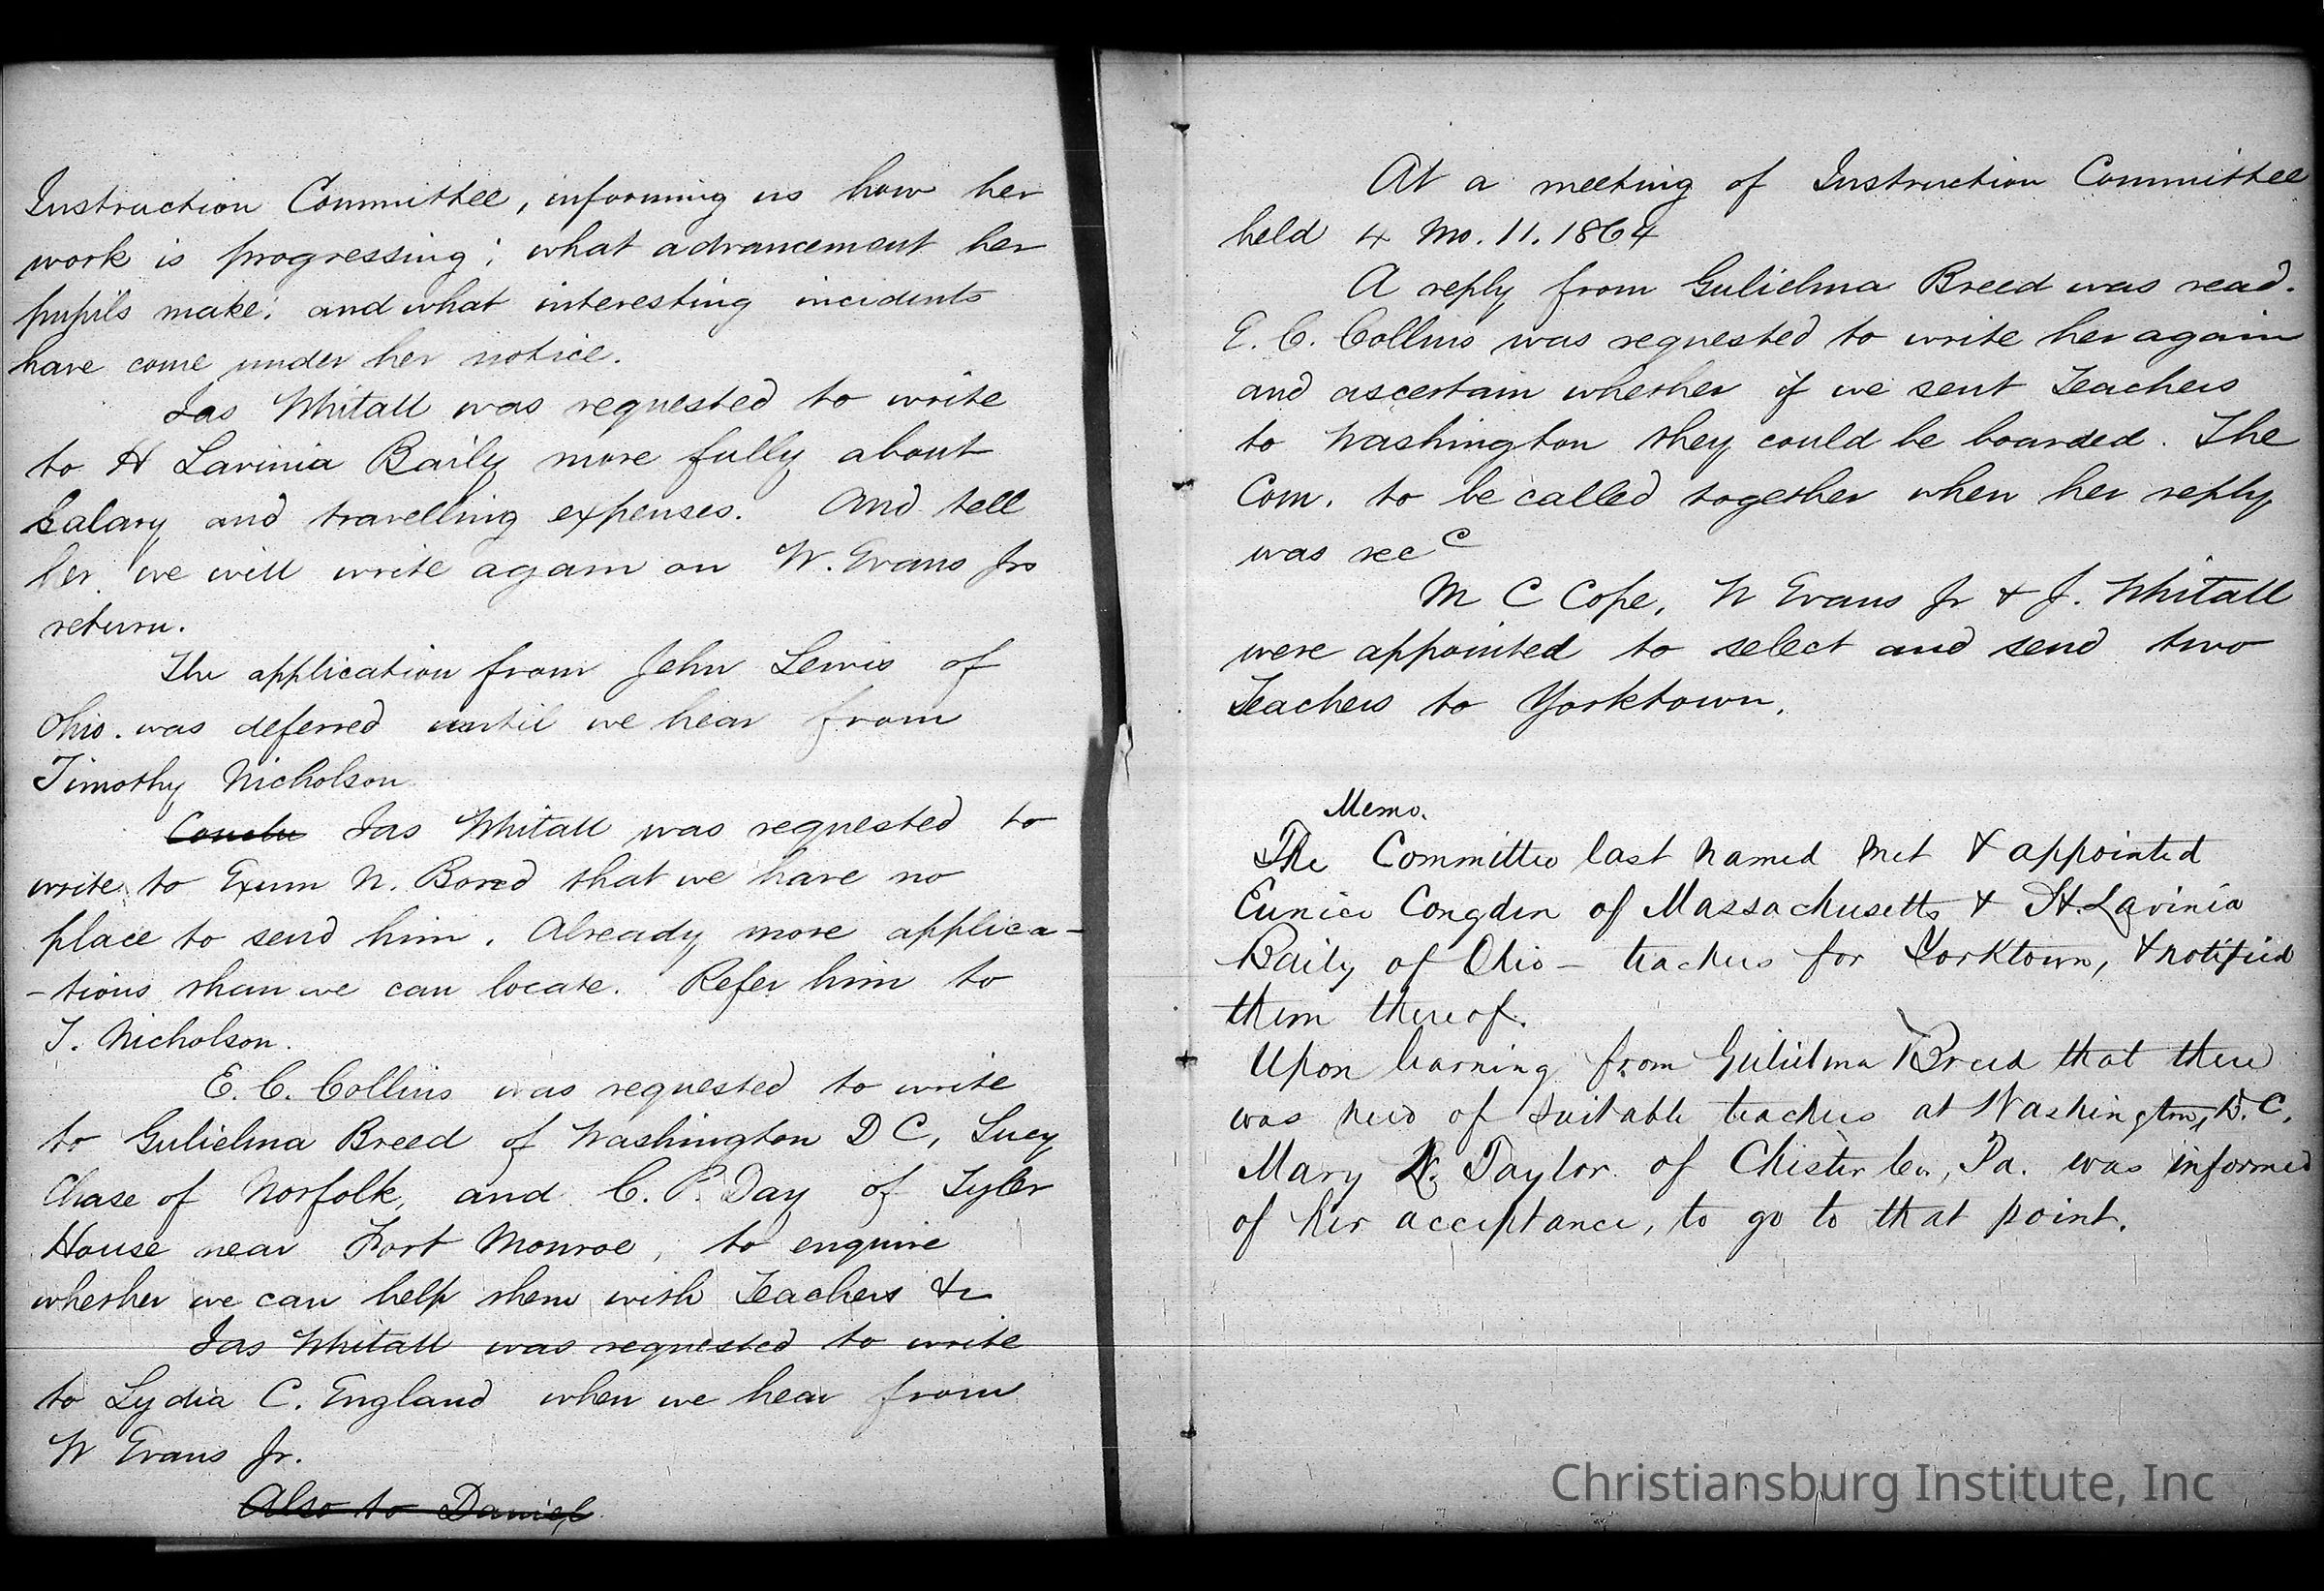 Instruction Committee, informing us how her
work is progressing; what advancement her
pupils make; and what interesting incidents
have come under her notice.
Jas Whitall was requested to write
to H Lavinia Baily more fully about
Salary and travelling expenses. And tell
her we will write again on W. Evans Jrs
return.
The application from John Lewis of
Ohio. was deferred until we hear from
Timothy Nicholson
Jas Whitall was requested to
write to Exum N. Bond that we have no
place to send him. Already more applica-
-tions than we can locate. Refer him to
T. Nicholson.
E. C. Collins was requested to write
to Gulielma Breed of Washington D C, Lucy
Chase of Norfolk, and C. P. Day of Tyler
House near Fort Monroe, to enquire
whether we can help them with Teachers &c
Jas Whitall was requested to write
to Lydia C. England when we hear from
W Evans Jr.
Also to Daniel
At a meeting of Instruction Committee
held 4 Mo. 11. 1864
A reply from Gulielma Breed was read.
E. C. Collins was requested to write her again
and ascertain whether if we sent Teachers
to Washington they could be boarded. The
Com. to be called together when her reply
was rec
M C Cope, W Evans Jr & J. Whitall
were appointed to select and send two
Teachers to Yorktown.
Memo.
The Committee last named met & appointed
Eunice Congdon of Massachusetts & H. Lavinia
Baily of Ohio - teachers for Yorktown, & notified
them thereof.
Upon learning from Gulielma Breed that there
was need of suitable teachers at Washington, D.C.
Mary Taylor of Chester Co., Pa. was informed
of her acceptance, to go to that point.
Christiansburg Institute, Inc